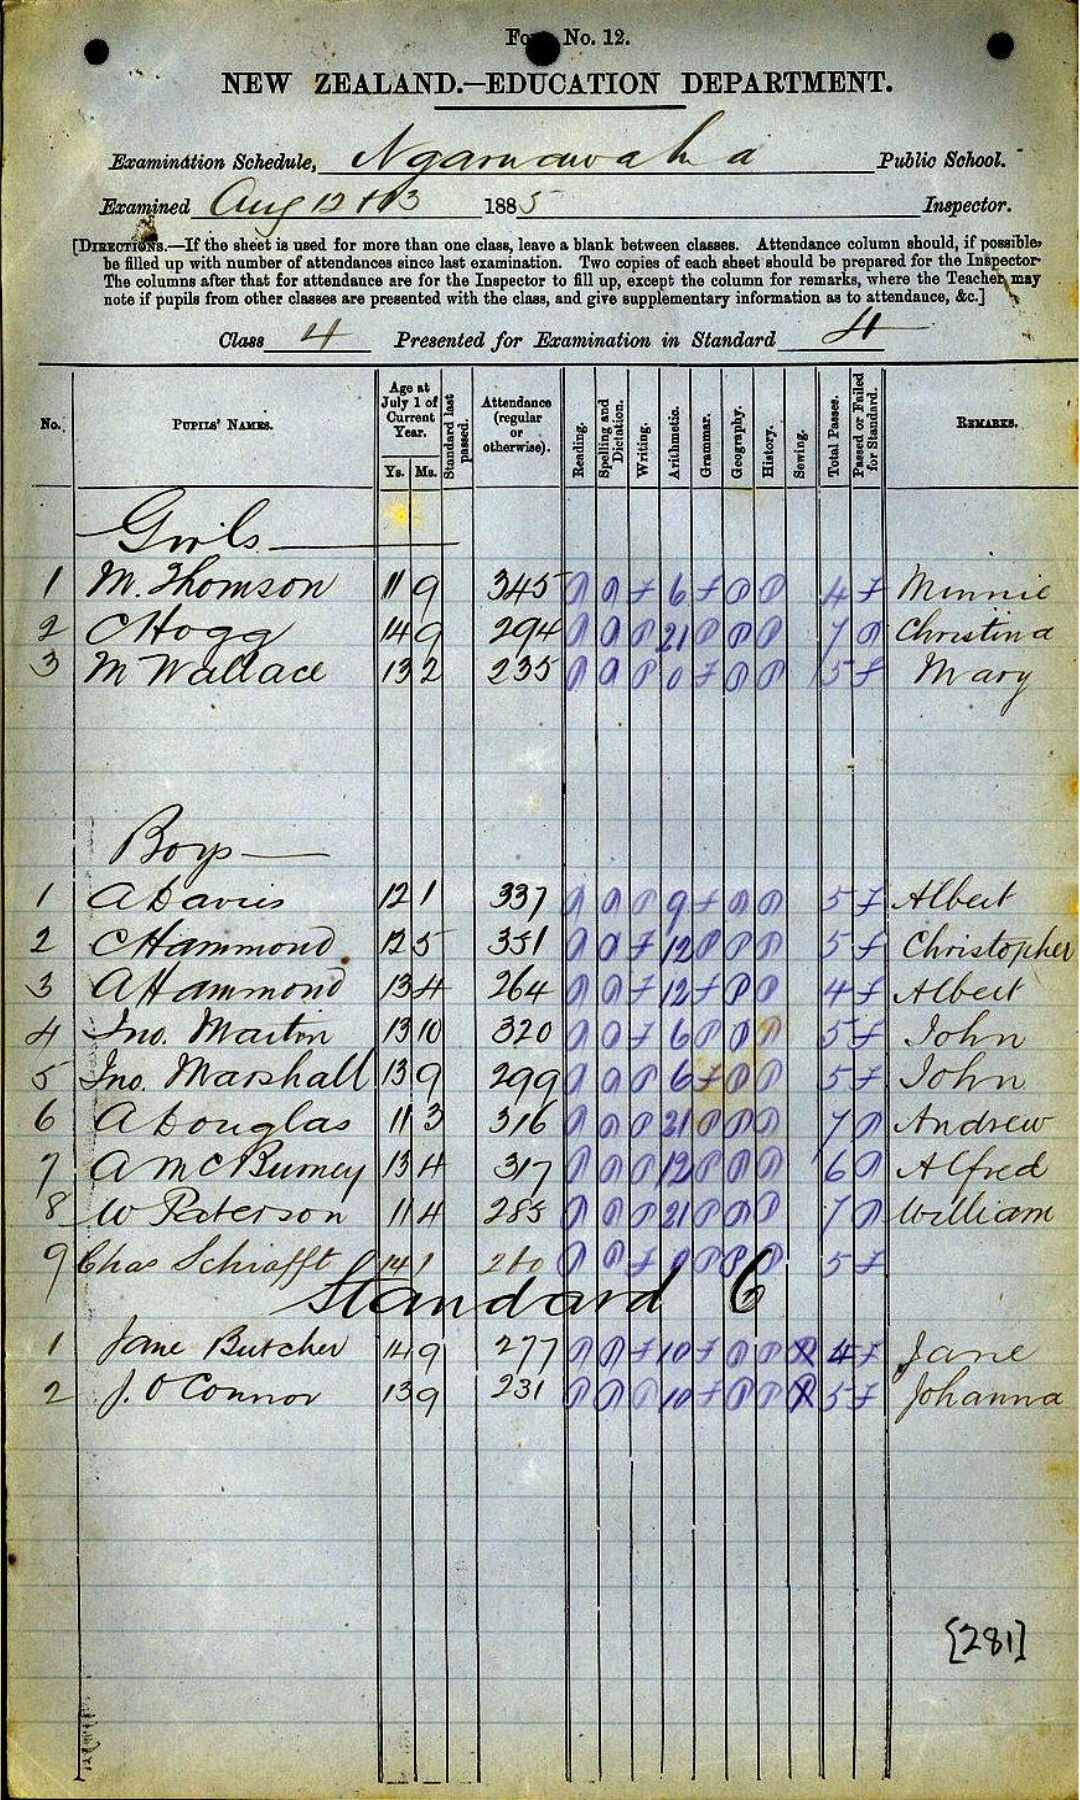 Form No. 12.
NEW ZEALAND.—EDUCATION DEPARTMENT.
Examination Schedule, Ngaruawahia Public School.
Examined Aug 12 & 13 1885 Inspector.
[DIRECTIONS.—If the sheet is used for more than one class, leave a blank between classes. Attendance column should, if possible,
be filled up with number of attendances since last examination. Two copies of each sheet should be prepared for the Inspector.
The columns after that for attendance are for the Inspector to fill up, except the column for remarks, where the Teacher may
note if pupils from other classes are presented with the class, and give supplementary information as to attendance, &c.]
Class 4 Presented for Examination in Standard 4
No. PUPILS' NAMES. Age at July 1 of Current Year. Ys. Ms. Standard last passed. Attendance (regular or otherwise). Reading. Spelling and Dictation. Writing. Arithmetic. Grammar. Geography. History. Sewing. Total Passes. Passed or Failed for Standard. REMARKS.
Girls
1 M. Thomson 11 9 345 P P F 6 F P P 4 F Minnie
2 C Hogg 14 9 294 P P P 21 P P P 7 P Christina
3 M Wallace 13 2 235 P P P 0 F P P 5 F Mary
Boys
1 A Davies 12 1 337 P P P 9 F P P 5 F Albert
2 C Hammond 12 5 351 P P F 12 P P P 5 F Christopher
3 A Hammond 13 4 264 P P F 12 F P P 4 F Albert
4 Jno. Martin 13 10 320 P P F 6 P P P 5 F John
5 Jno. Marshall 13 9 299 P P P 6 F P P 5 F John
6 A Douglas 11 3 316 P P P 21 P P P 7 P Andrew
7 A McBurney 13 4 317 P P P 12 P P P 6 P Alfred
8 W Paterson 11 4 285 P P P 21 P P P 7 P William
9 Chas Schiafft 14 1 260 P P F 0 P P P 5 F
Standard 6
1 Jane Butcher 14 9 277 P P F 10 F P P X 4 F Jane
2 J. O'Connor 13 9 231 P P P 10 F P P X 5 F Johanna
[281]